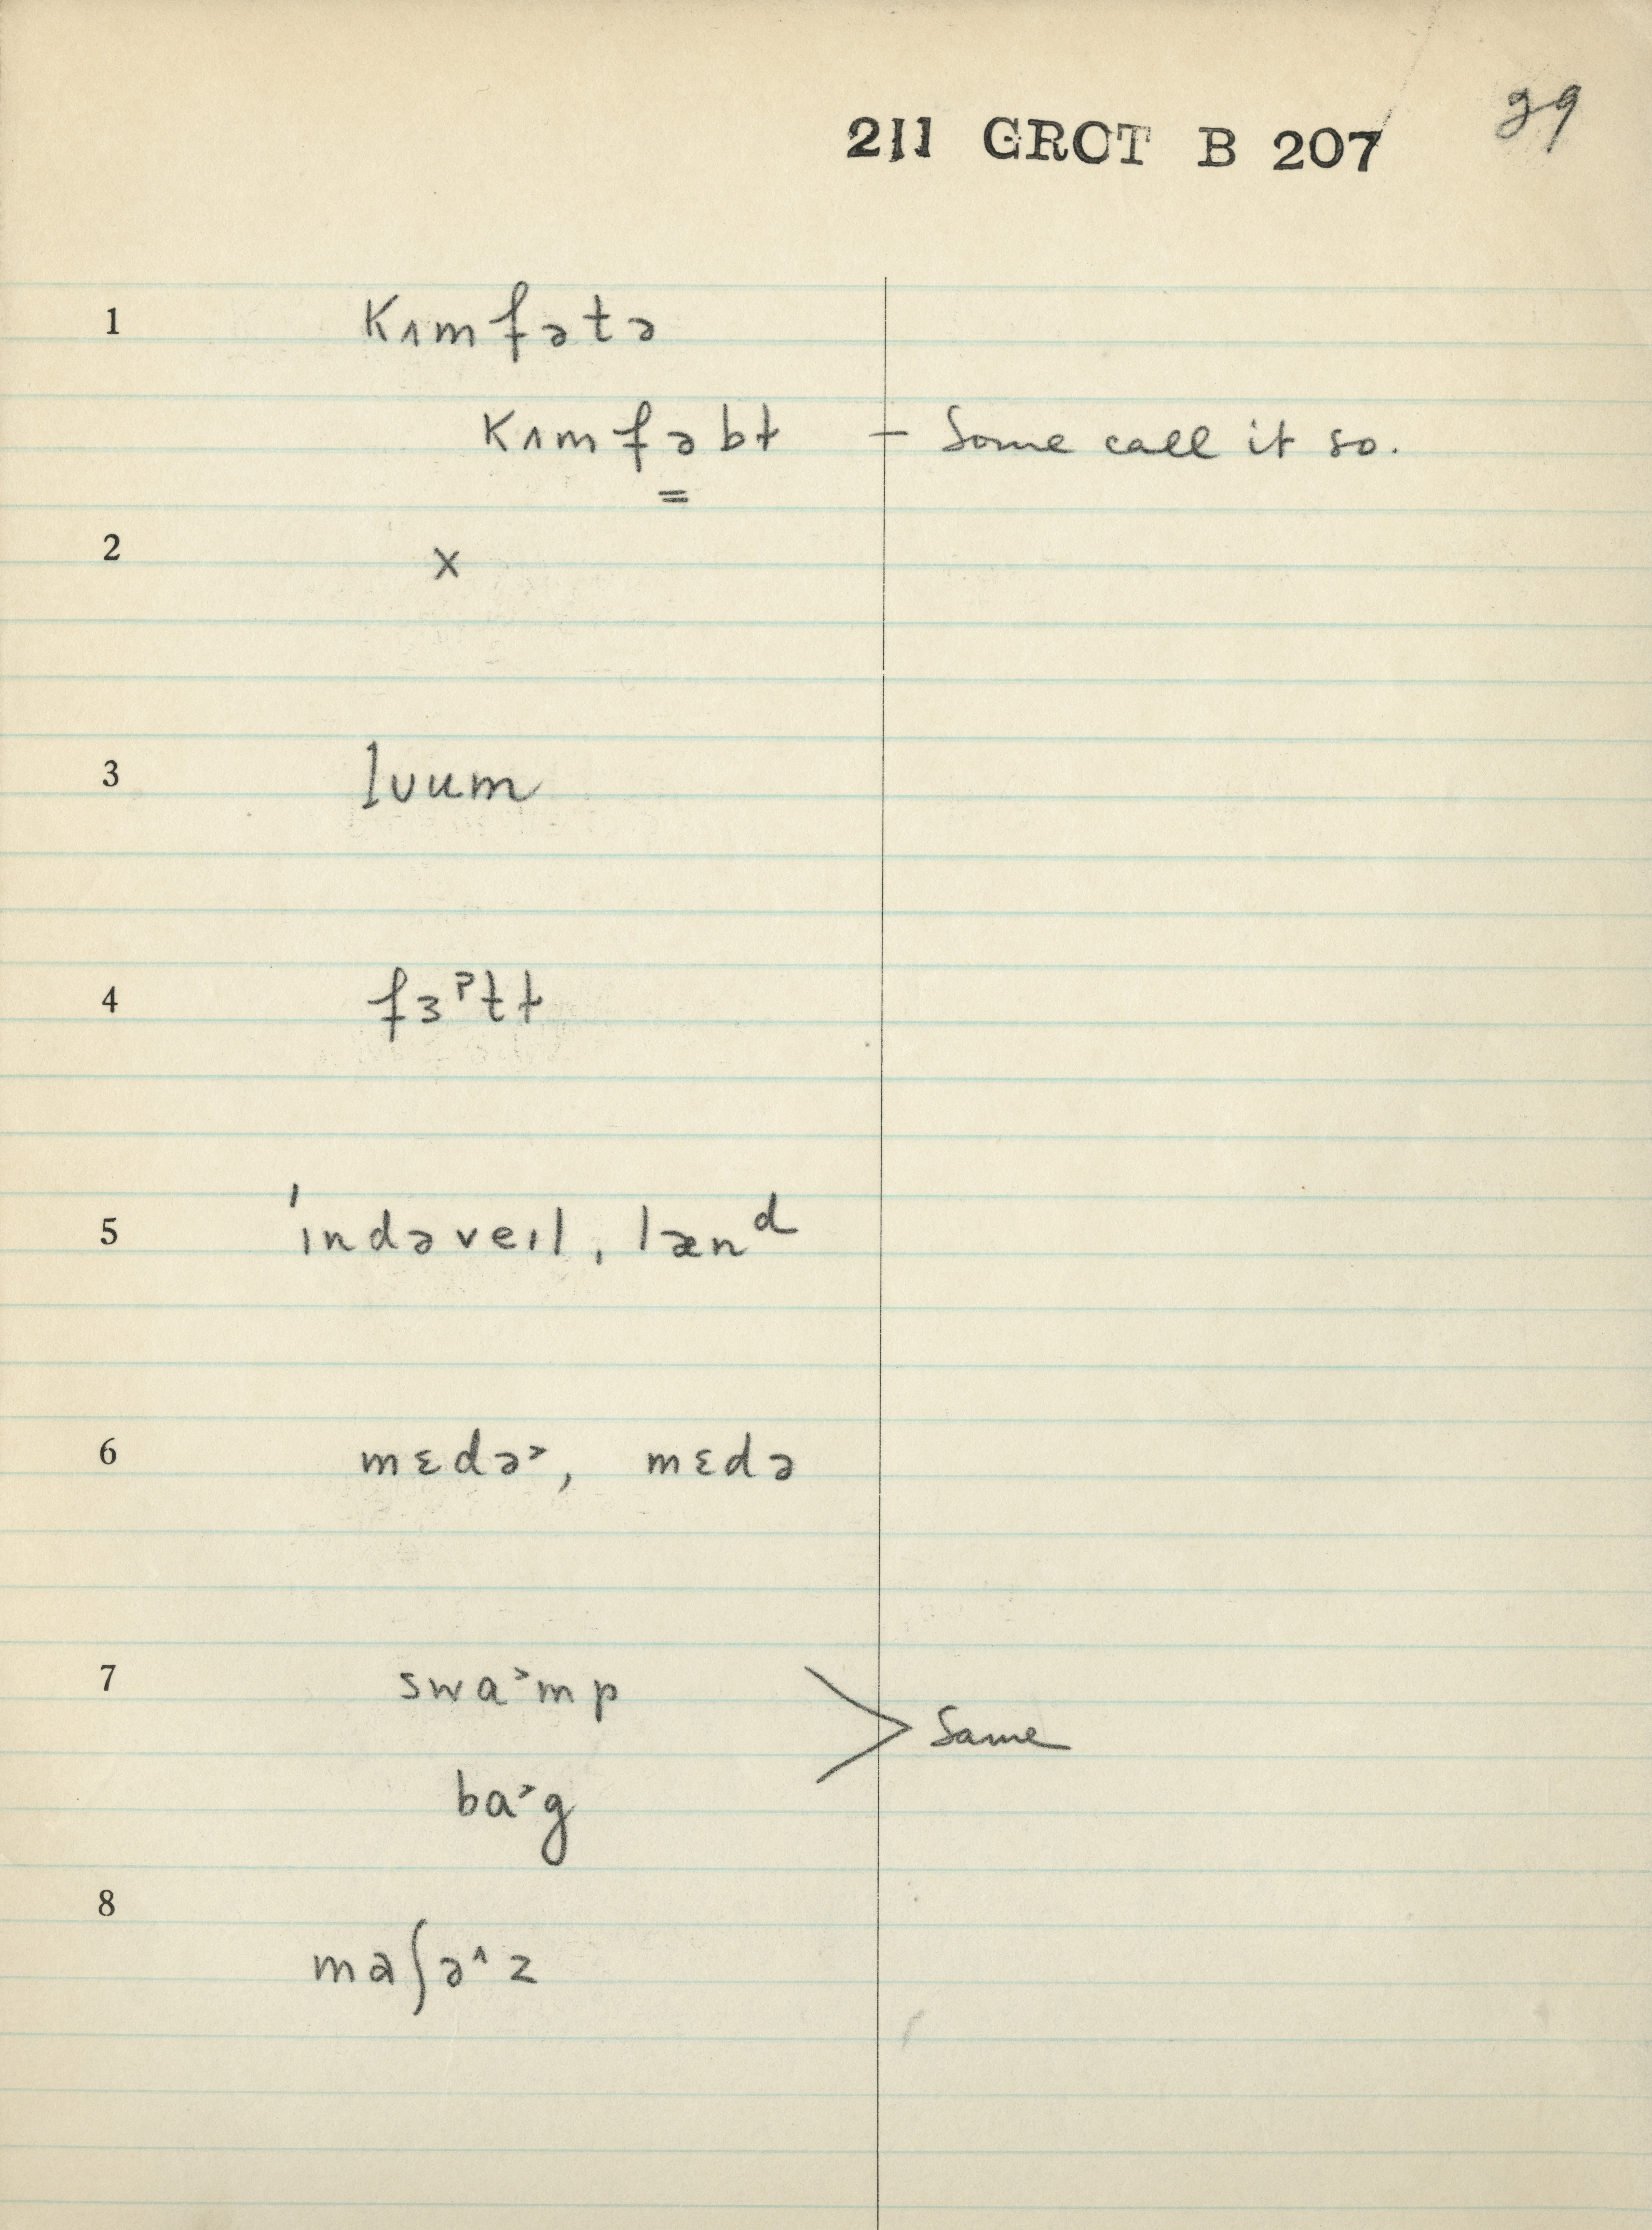 211 GROT B 207
29
1 kʌmfətə
kʌmfəbt – Some call it so.
=
2 x
3 lʊum
4 fɜᵖtt
5 ˈɪndəveɪl, lænᵈ
6 mɛdə˃, mɛdə
7 swa˃mp
> Same
ba˃g
8 maʃə^z